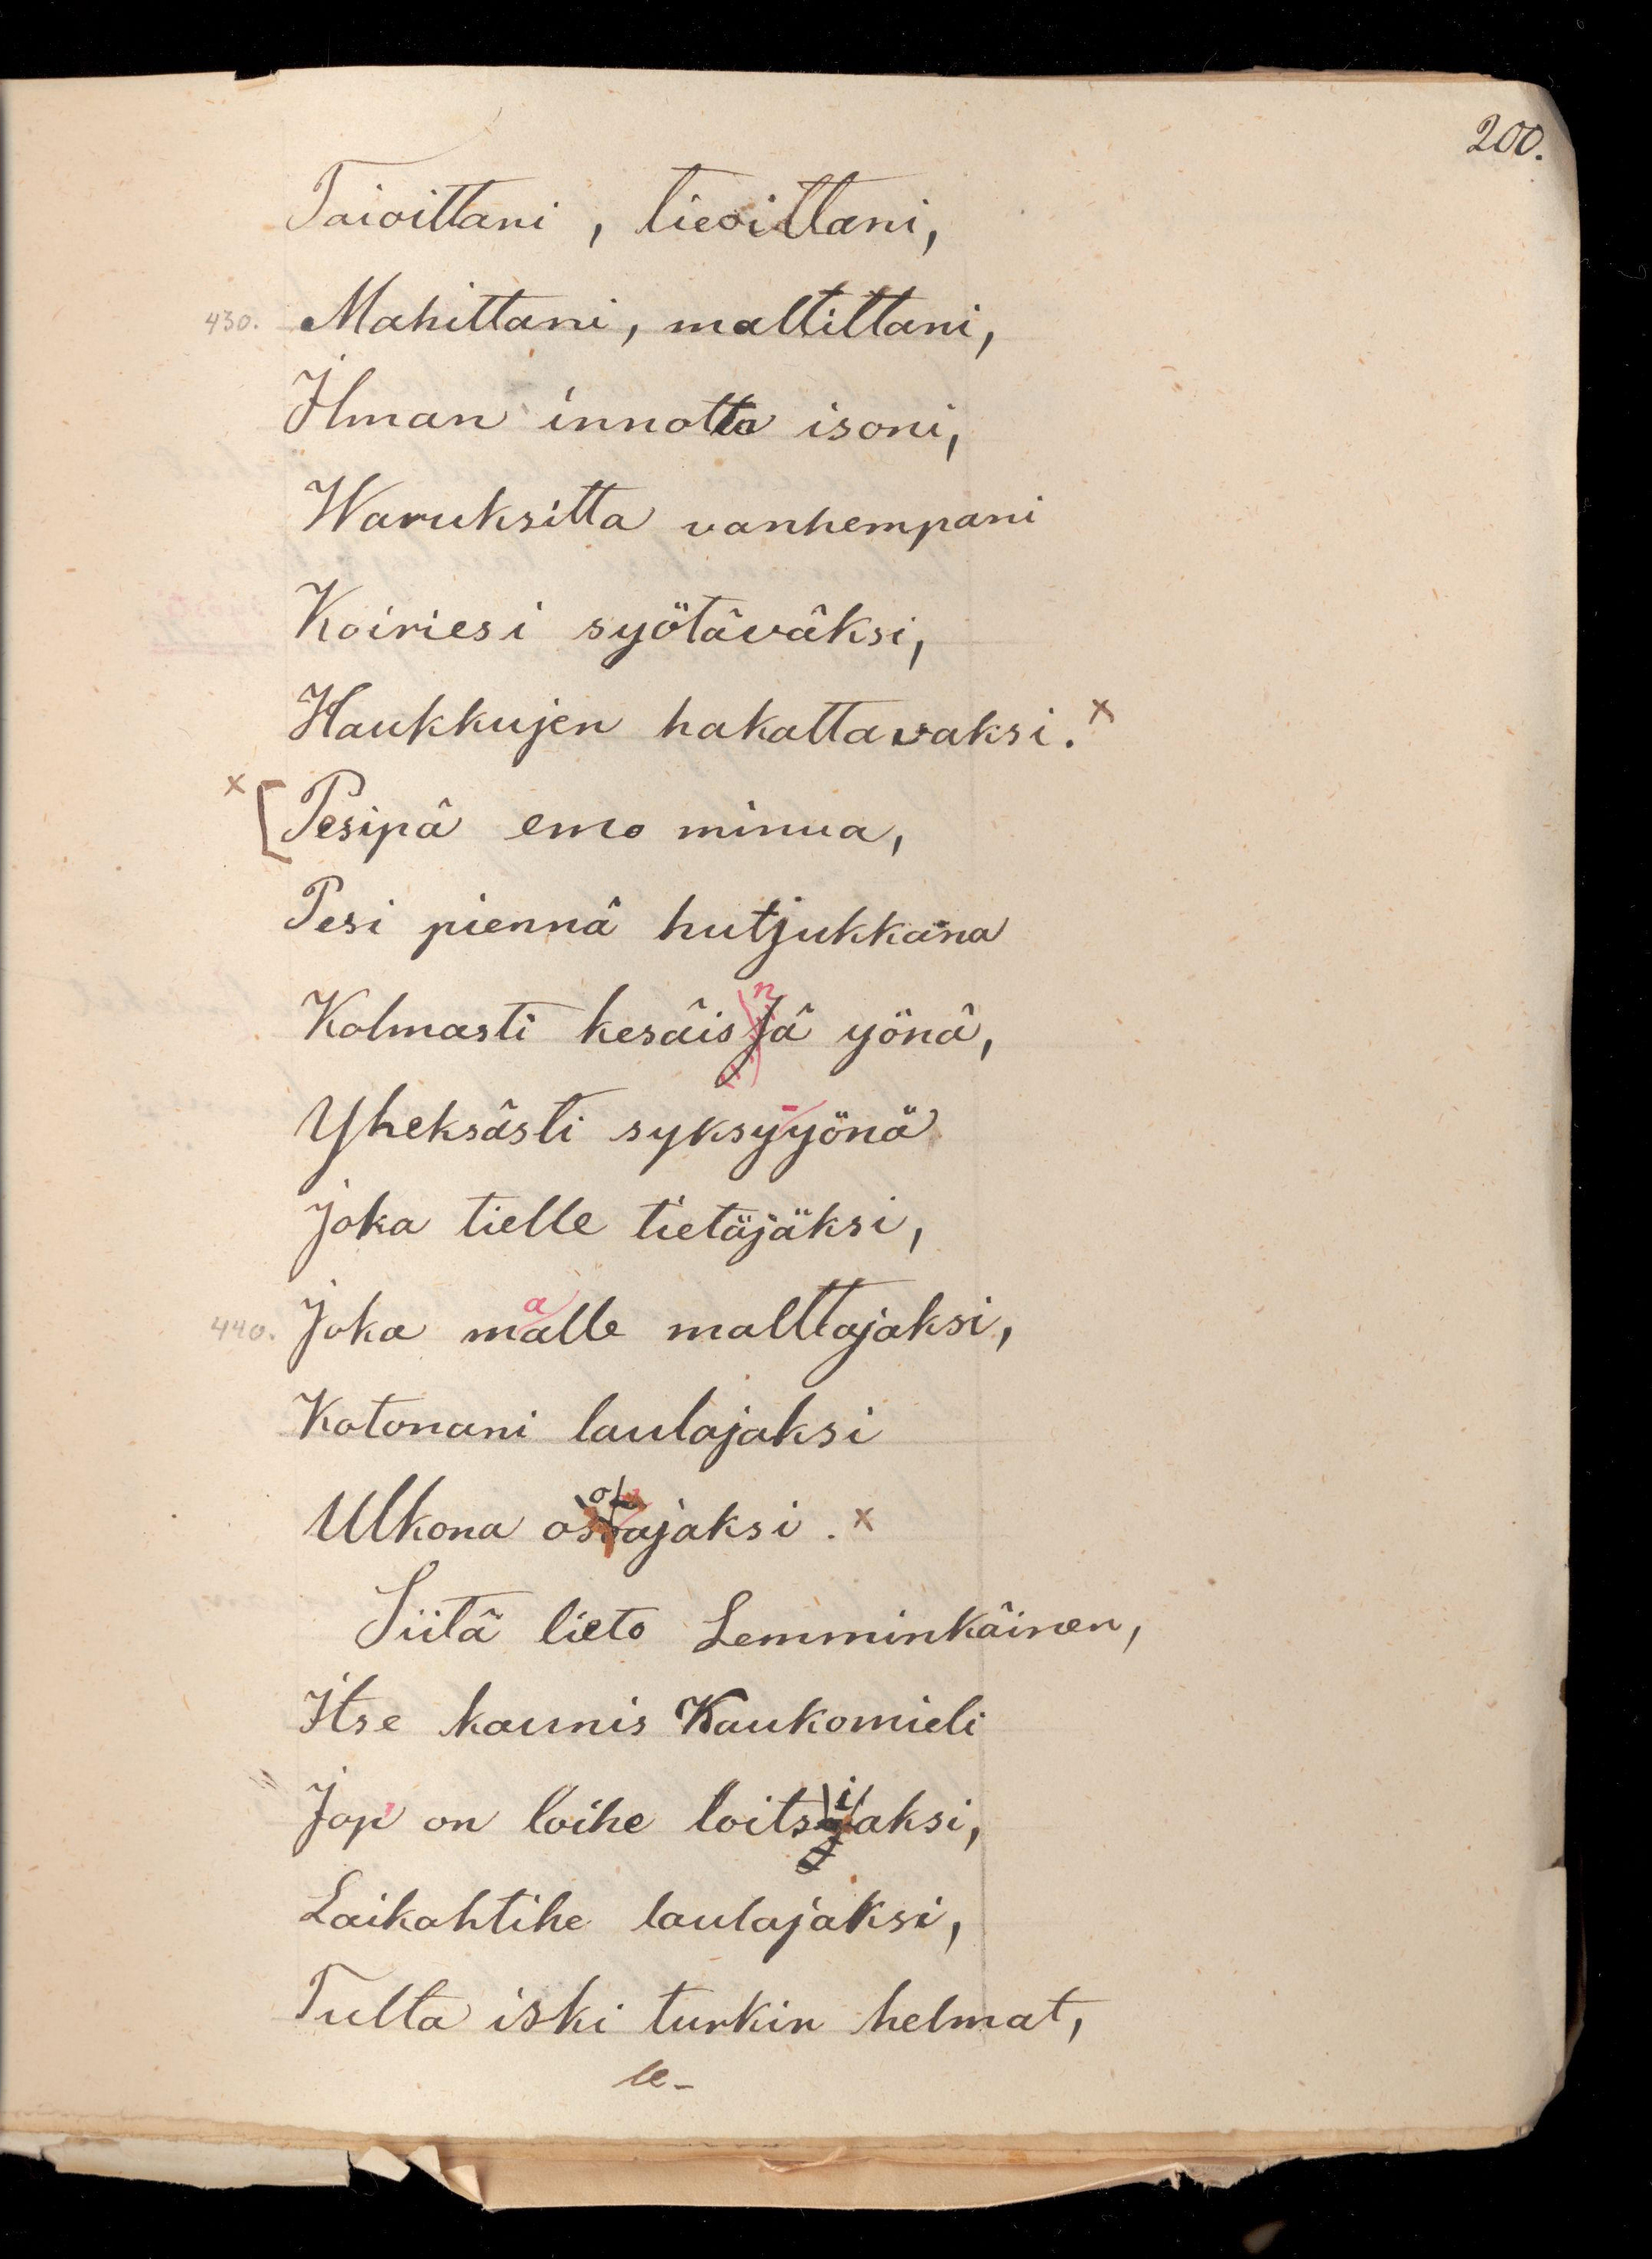 200.
Taioittani, tievittani,
430. Mahittani, malttittani,
Ilman innotta isoni,
Waruksitta vanhempani
Koiriesi syötäväksi,
Haukkujen hakattavaksi. x
x [Pesipä emo minua,
Pesi piennä hutjukkana
Kolmasti kesäisnä yönä,
Yheksästi syksy-yönä
Joka tielle tietäjäksi,
440. Joka maalle malttajaksi,
Kotonani laulajaksi
Ulkona osoajaksi. x
Siitä lieto Lemminkäinen,
Itse kaunis Kaukomieli
Jop' on loihe loitsijaksi,
Laikahtihe laulajaksi,
Tulta iski turkin helmat,
le-